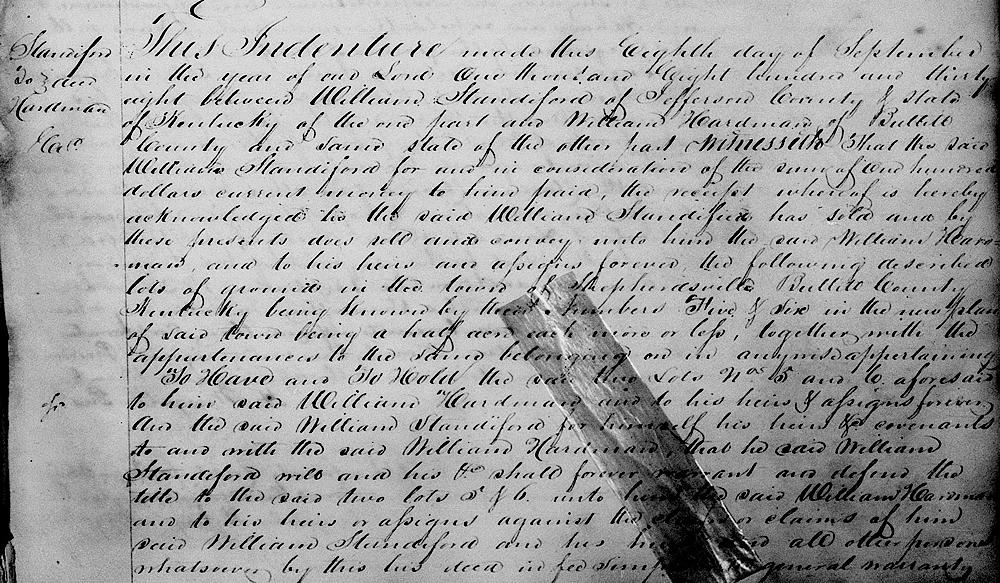 Standiford
To } deed
Hardman
Exd.
This Indenture made this Eighth day of September
in the year of our Lord One thousand Eight hundred and thirty
eight between William Standiford of Jefferson County & state
of Kentucky of the one part and William Hardman of Bullitt
County and same state of the other part Witnesseth That the said
William Standiford for and in consideration of the sum of One hundred
dollars current money to him paid, the receipt whereof is hereby
acknowledged he the said William Standiford has sold and by
these presents does sell and convey unto him the said William Hard
man, and to his heirs and assigns forever, the following described
lots of ground in the town of Shepherdsville Bullitt County
Kentucky being known by their numbers Five & six in the new plan
of said Town being a half acre each more or less, together with the
appurtenances to the same belonging or in anywise appertaining
To Have and To Hold the said two Lots Nos 5 and 6. aforesaid
to him said William Hardman and to his heirs & assigns forever
And the said William Standiford for himself his heirs &c covenants
to and with the said William Hardman that he said William
Standiford will and his &c shall forever warrant and defend the
title to the said two lots 5 & 6. unto him the said William Hardman
and to his heirs or assigns against the claim or claims of him
said William Standiford and his heirs and all other persons
whatsoever by this his deed in fee simple general warranty